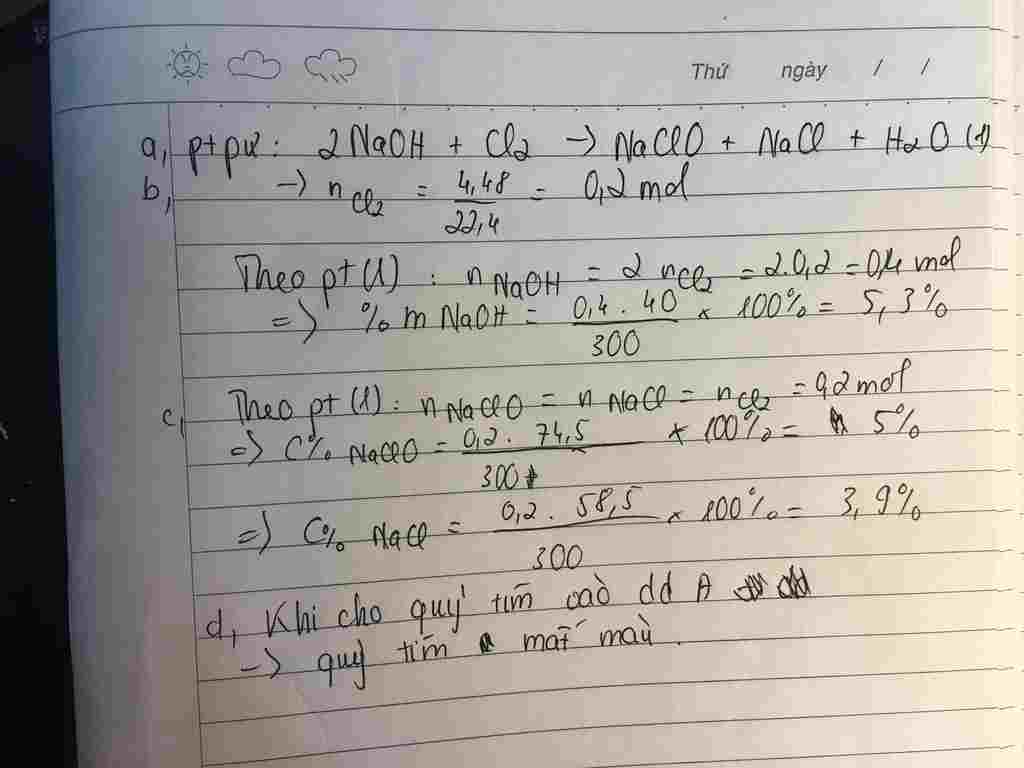 Thứ ngày / /
a, ptpư: 2NaOH + Cl2 → NaClO + NaCl + H2O (1)
b, → nCl2 = 4,48/22,4 = 0,2 mol
Theo pt (1) : nNaOH = 2 nCl2 = 2.0,2 = 0,4 mol
=> % m NaOH = 0,4 . 40/300 × 100% = 5,3%
c, Theo pt (1): nNaClO = nNaCl = nCl2 = 0,2 mol
=> C% NaClO = 0,2 . 74,5/300 × 100% = 5%
=> C% NaCl = 0,2 . 58,5/300 × 100% = 3,9%
d, Khi cho quỳ tím vào dd A
→ quỳ tím mất màu.